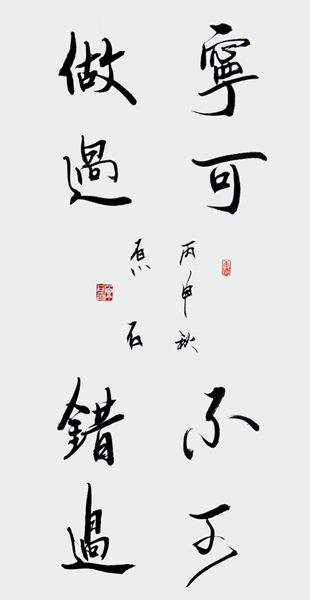 寧可
做過
不可
錯過
丙申秋
石